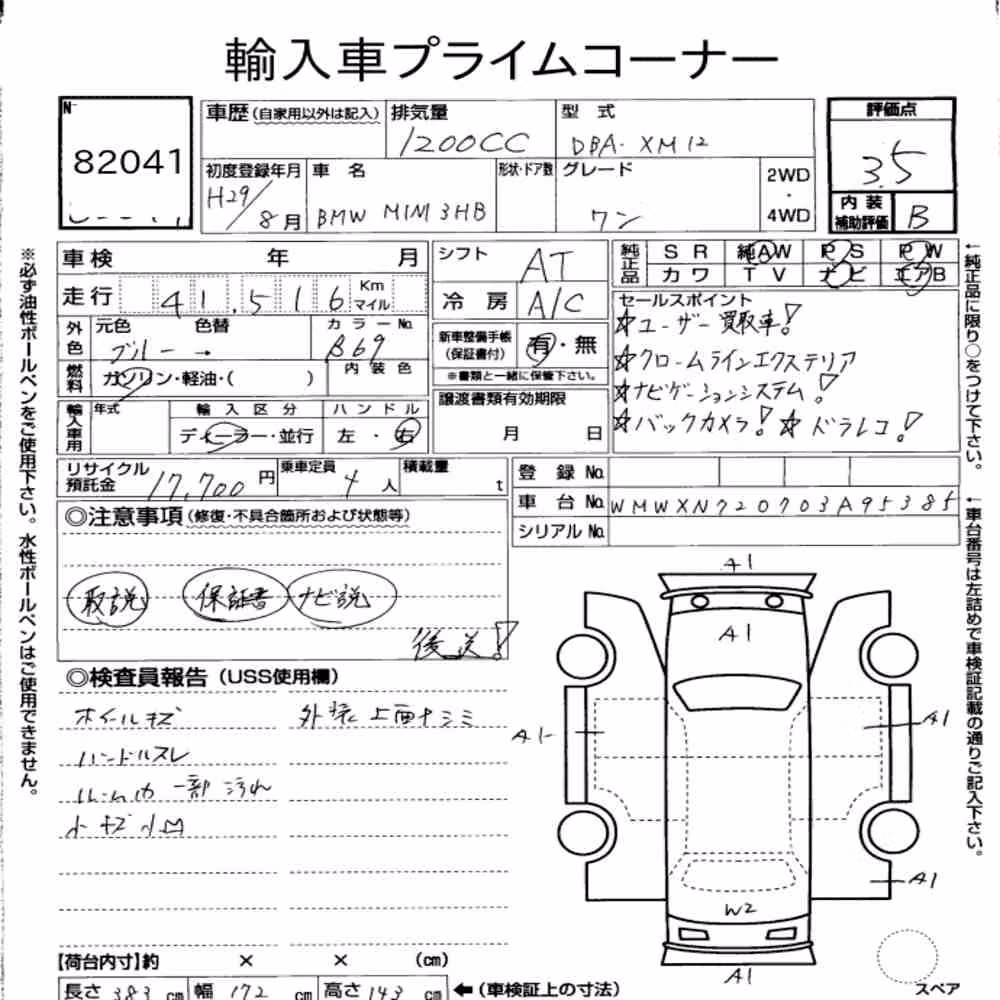 輸入車プライムコーナー
No
82041
車歴 (自家用以外は記入) 排気量 型式 評価点
1200CC DBA-XM12 3.5
初度登録年月 車名 形状・ドア数 グレード 2WD・4WD
H29/8月 BMW MINI 3HB ワン
内装補助評価 B
車検 年 月 シフト AT 純正品 SR 純AW PS PW
カワ TV ナビ エアB
走行 41,516 Km マイル 冷房 A/C
外色 元色 色替 カラーNo.
ブルー → B69
新車整備手帳(保証書付) 有・無
※書類と一緒に保管下さい。
セールスポイント
☆ユーザー買取車!
☆クロームラインエクステリア
☆ナビゲーションシステム!
☆バックカメラ!☆ドラレコ!
燃料 ガソリン・軽油・( ) 内装色
輸入車用 年式 輸入区分 ハンドル
ディーラー・並行 左・右
譲渡書類有効期限
月 日
リサイクル預託金 17,700円 乗車定員 4人 積載量 t
登録No.
車台No. WMWXN720703A95385
シリアルNo.
◎注意事項 (修復・不具合箇所および状態等)
取説 保証書 ナビ説
後送!
◎検査員報告 (USS使用欄)
ホイールキズ 外装上面ナシミ
ハンドルスレ
ルーム内一部汚れ
小キズ小凹
A1
A1
A1
A1
A1
W2
A1
スペア
【荷台内寸】約 × × (cm)
長さ 383 cm 幅 172 cm 高さ 143 cm ←(車検証上の寸法)
※必ず油性ボールペンをご使用下さい。水性ボールペンはご使用できません。
←純正品に限り○をつけて下さい。
←車台番号は左詰めで車検証記載の通りご記入下さい。